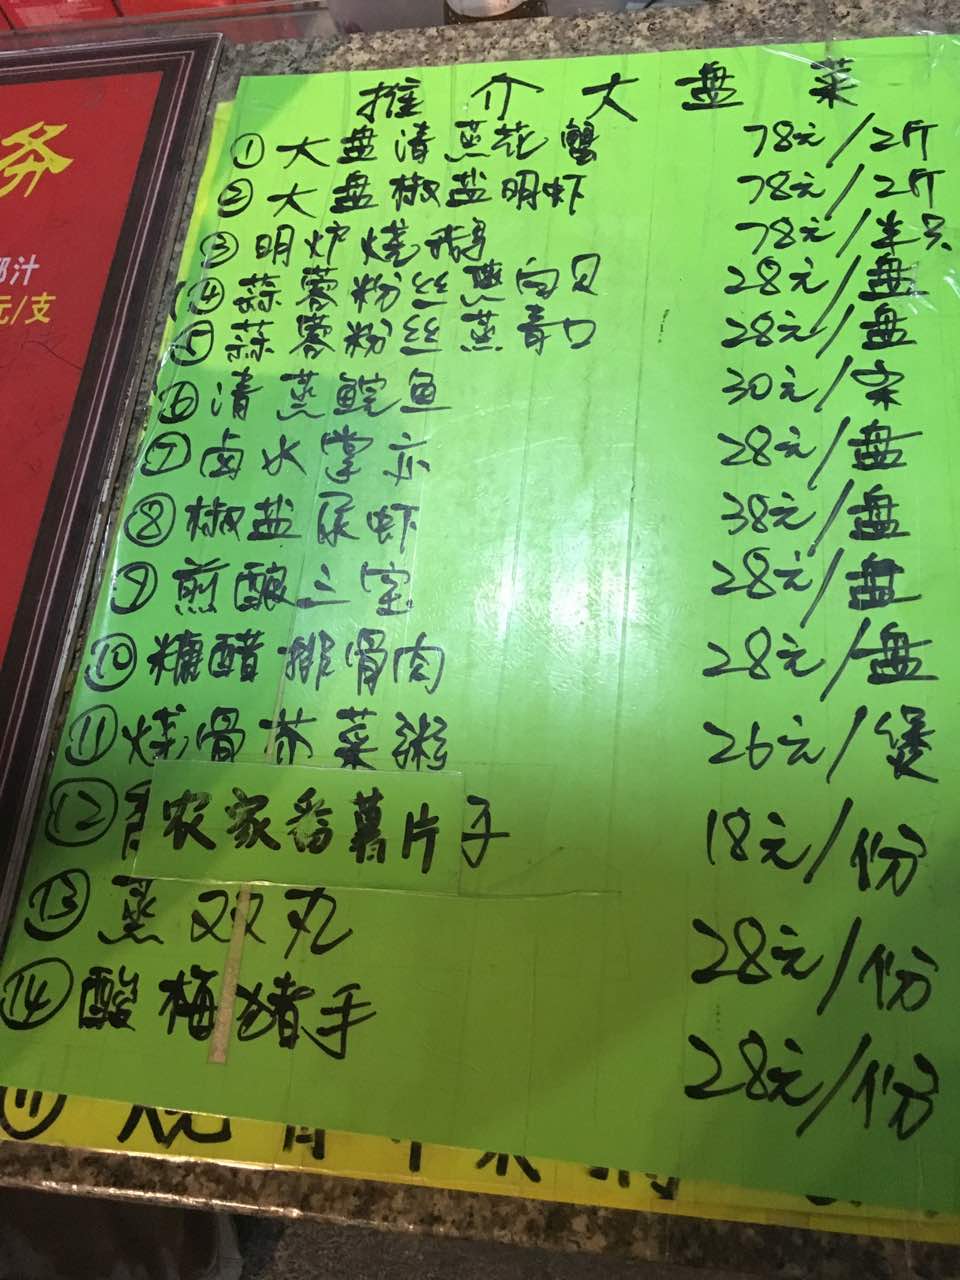 推介大盘菜
①大盘清蒸花蟹 78元/2斤
②大盘椒盐明虾 78元/2斤
③明炉烧鹅 78元/半只
④蒜蓉粉丝蒸白贝 28元/盘
⑤蒜蓉粉丝蒸青口 28元/盘
⑥清蒸鲩鱼 30元/
⑦卤水掌亦 28元/盘
⑧椒盐尿虾 38元/盘
⑨煎酿三宝 28元/盘
⑩糖醋排骨肉 28元/盘
⑪烧骨芥菜粥 26元/煲
⑫农家番薯片子 18元/份
⑬蒸双丸 28元/份
⑭酸梅猪手 28元/份
务
汁
元/支
⑪